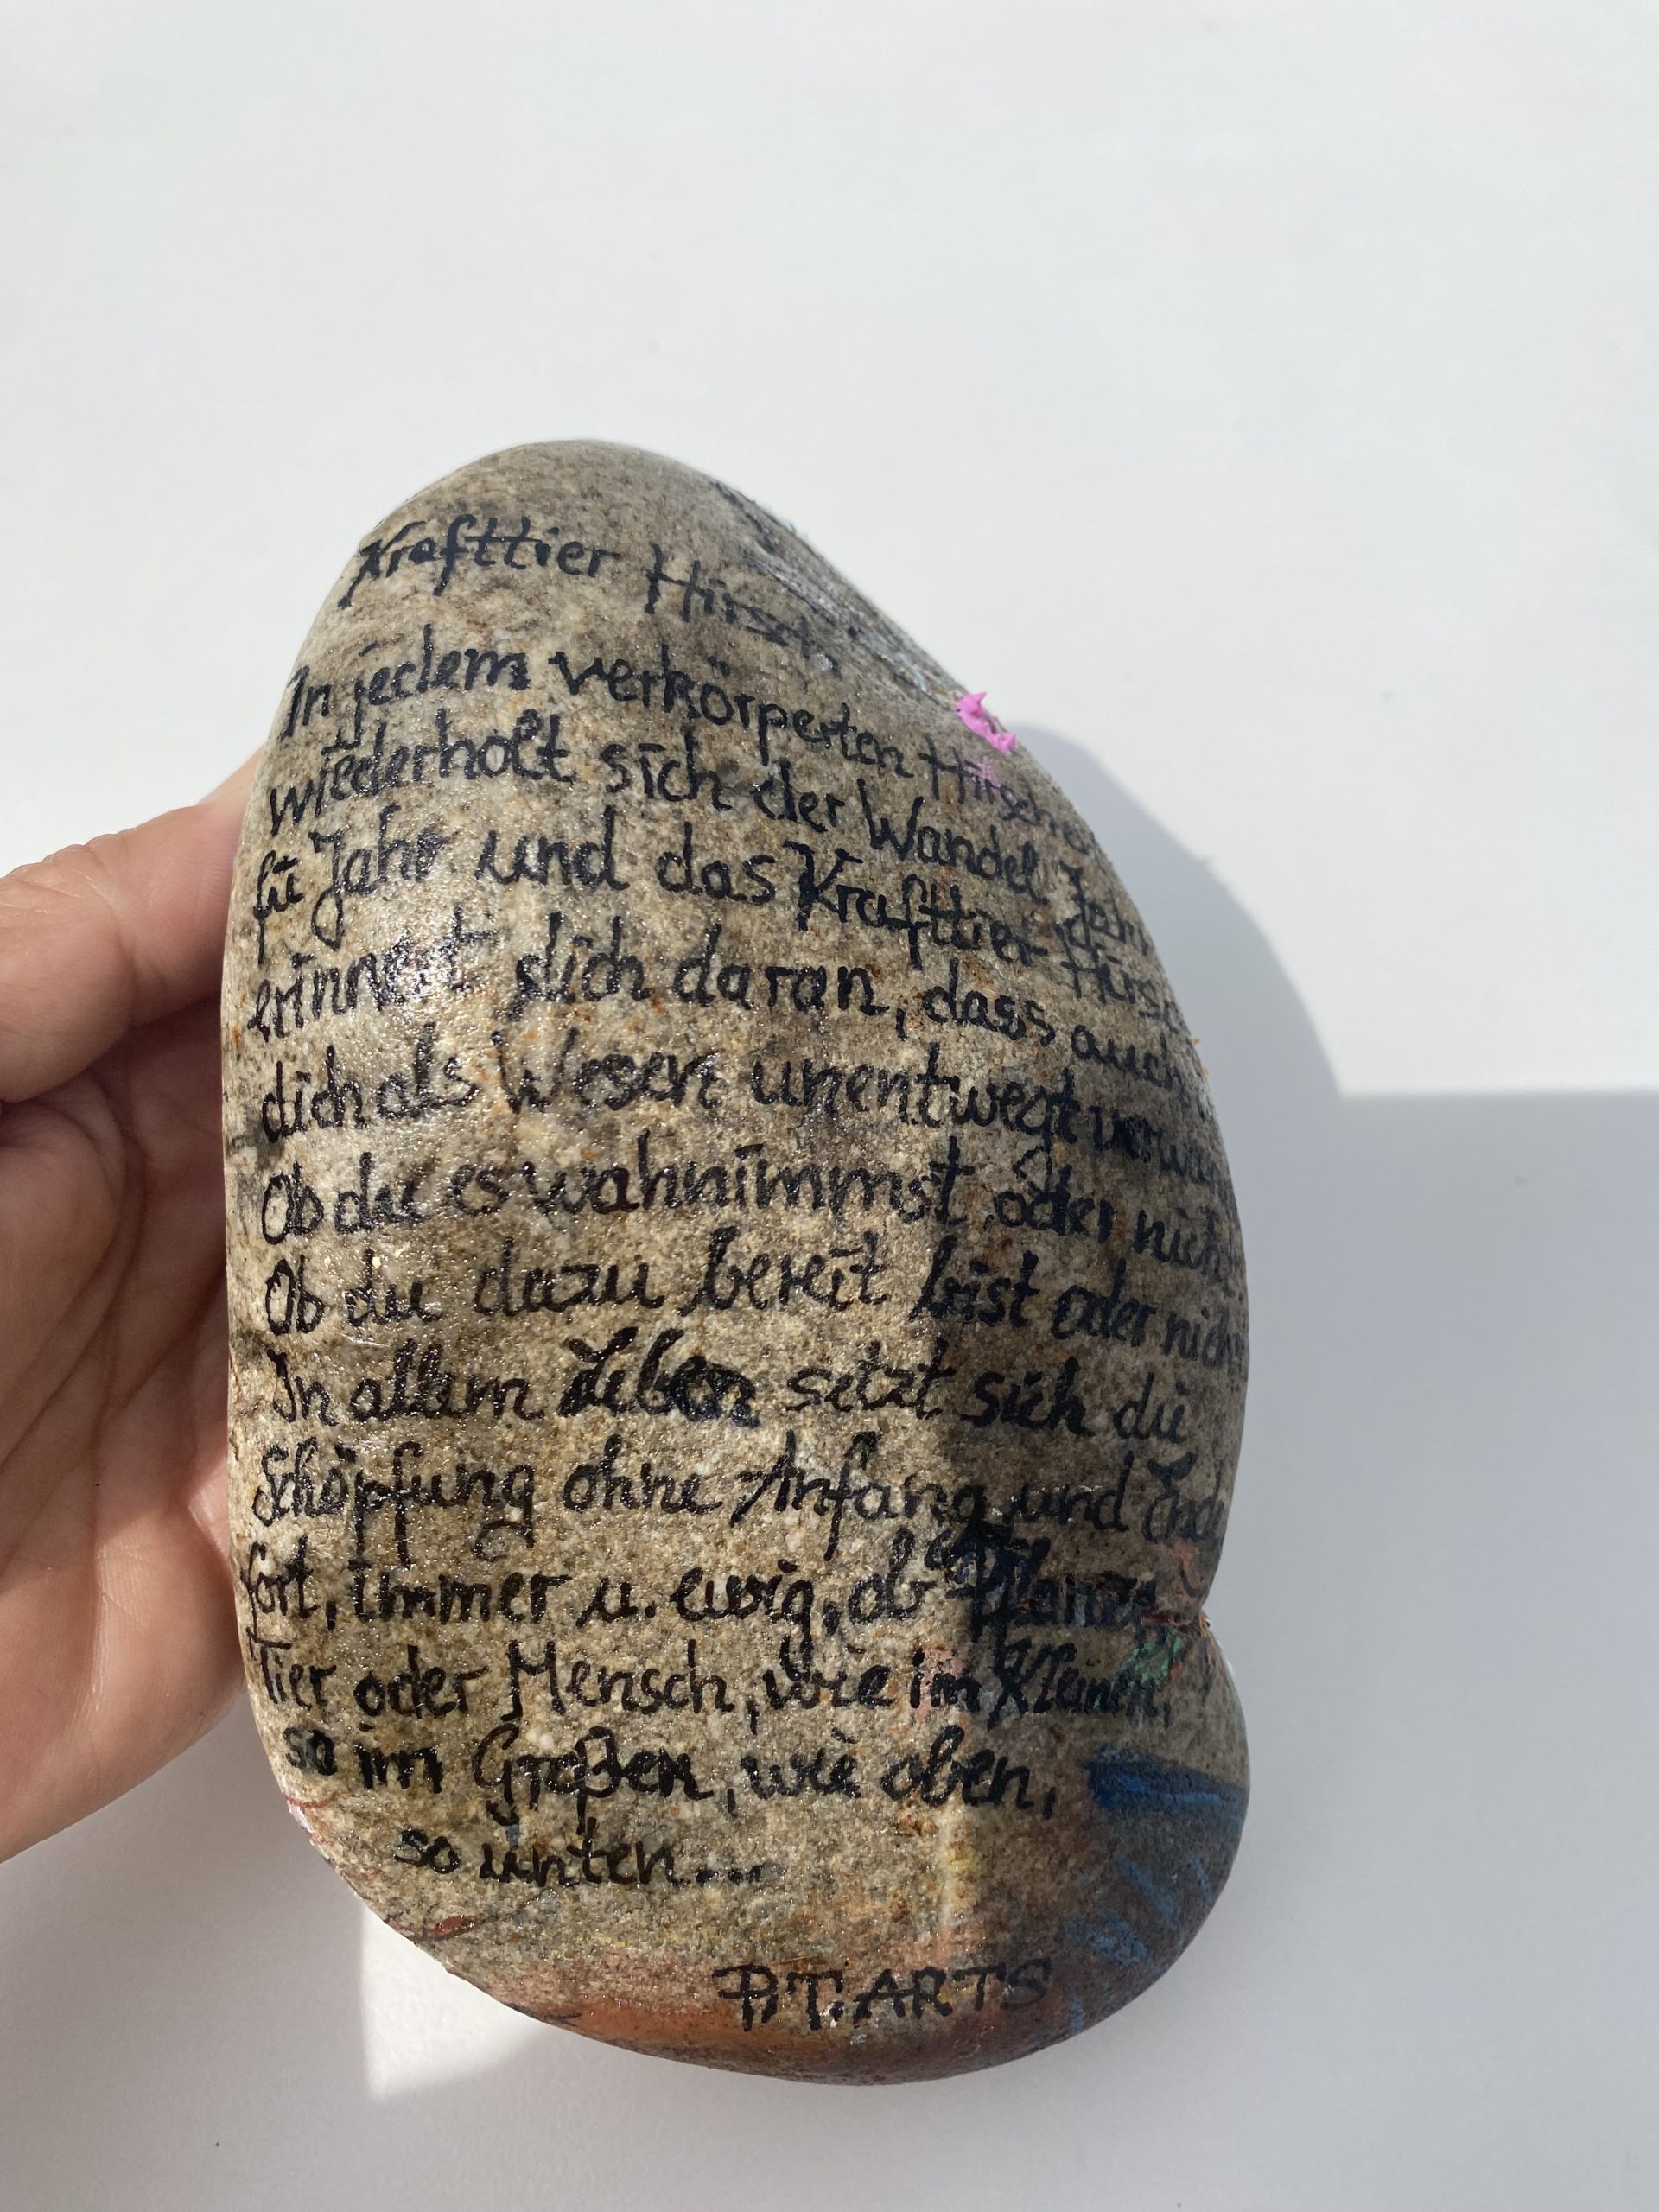 Krafttier Hirsch
In jedem verkörperten Hirschen
wiederholt sich der Wandel Jahr
fü Jahr und das Krafttier Hirsch
erinnert dich daran, dass auch
dich als Wesen unentwegt
Ob du es wahrnimmst oder nicht
Ob du dazu bereit bist oder nicht
In allem Leben setzt sich die
Schöpfung ohne Anfang und Ende
fort, immer u. ewig, ob Pflanze
Tier oder Mensch, wie im Kleinen,
so im Großen, wie oben,
so unten...
P.T. ARTS